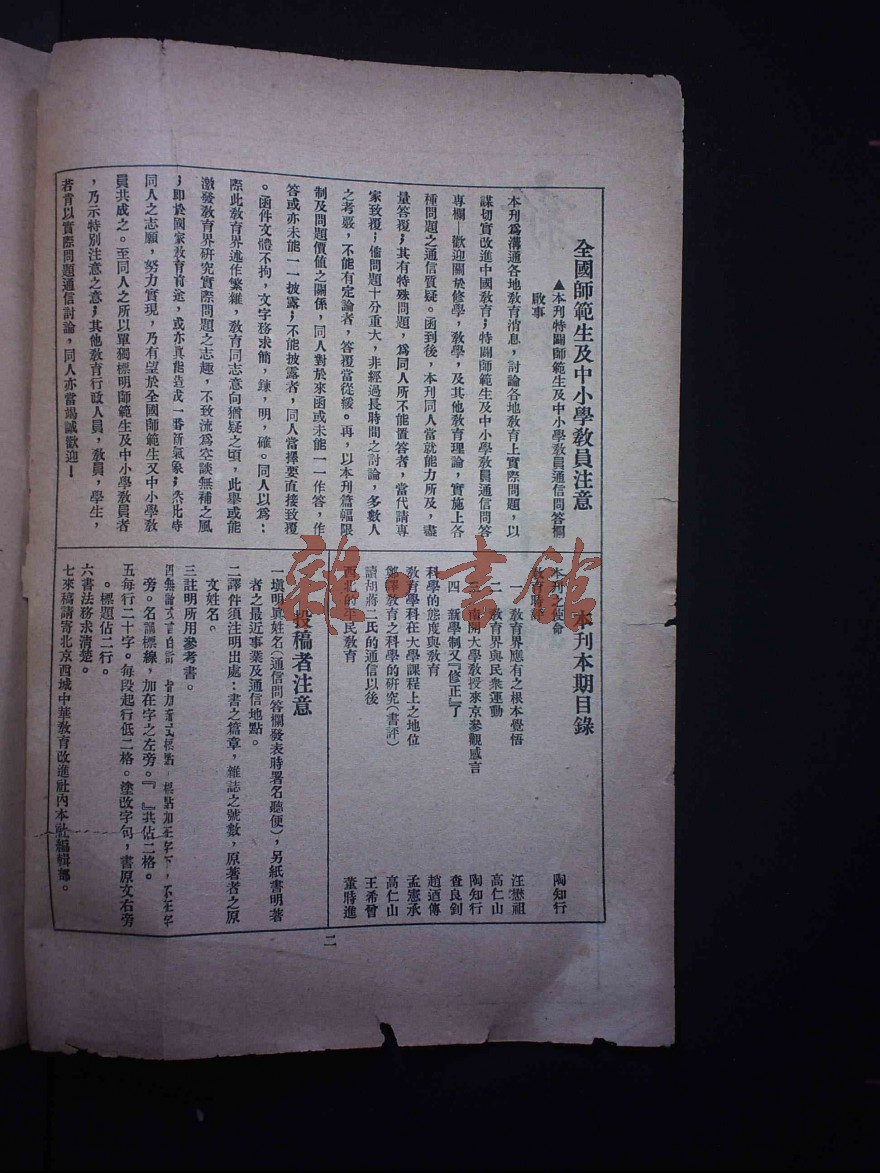 全國師範生及中小學教員注意
▲本刊特闢師範生及中小學教員通信問答欄
啟事
本刊爲溝通各地教育消息，討論各地教育上實際問題，以
謀切實改進中國教育；特闢師範生及中小學教員通信問答
專欄—歡迎關於修學，教學，及其他教育理論，實施上各
種問題之通信質疑。函到後，本刊同人當就能力所及，盡
量答覆；其有特殊問題，爲同人所不能置答者，當代請專
家致覆；倘問題十分重大，非經過長時間之討論，多數人
之考嚴，不能有定論者，答覆當從緩。再，以本刊篇幅限
制及問題價值之關係，同人對於來函或未能一一作答，作
答或亦未能一一披露；不能披露者，同人當擇要直接致覆
。函件文體不拘，文字務求簡，鍊，明，確。同人以爲：
際此教育界述作繁雜，教育同志意向猶疑之頃，此舉或能
激發教育界研究實際問題之志趣，不致流爲空談無補之風
；即於國家教育前途，或亦眞能造成一番新氣象；然此時
同人之志願，努力實現，乃有望於全國師範生及中小學教
員共成之。至同人之所以單獨標明師範生及中小學教員者
，乃示特別注意之意；其他教育行政人員，教員，學生，
若肯以實際問題通信討論，同人亦當竭誠歡迎！
本刊本期目錄
本刊之使命 陶知行
教育時評
一 教育界應有之根本覺悟 汪懋祖
二 教育界與民衆運動 高仁山
三 南開大學教授來京參觀感言 陶知行
四 新學制又『修正』了 查良釗
科學的態度與教育 趙迺傳
教育學科在大學課程上之地位 孟憲承
鄭譯教育之科學的研究（書評） 高仁山
讀胡蔣二氏的通信以後 王希曾
西北的平民教育 董時進
投稿者注意
一塡明眞姓名（通信問答欄發表時署名聽便），另紙書明著
者之最近事業及通信地點。
二譯件須注明出處：書之篇章，雜誌之號數，原著者之原
文姓名。
三註明所用參考書。
四無論文言白話，皆加新式標點，標點加在字下，不在字
旁。名謂標線，加在字之左旁。『 』共佔二格。
五每行二十字。每段起行低二格。塗改字句，書原文右旁
。標題佔二行。
六書法務求清楚。
七來稿請寄北京西城中華教育改進社內本社編輯部。
二
雜書館